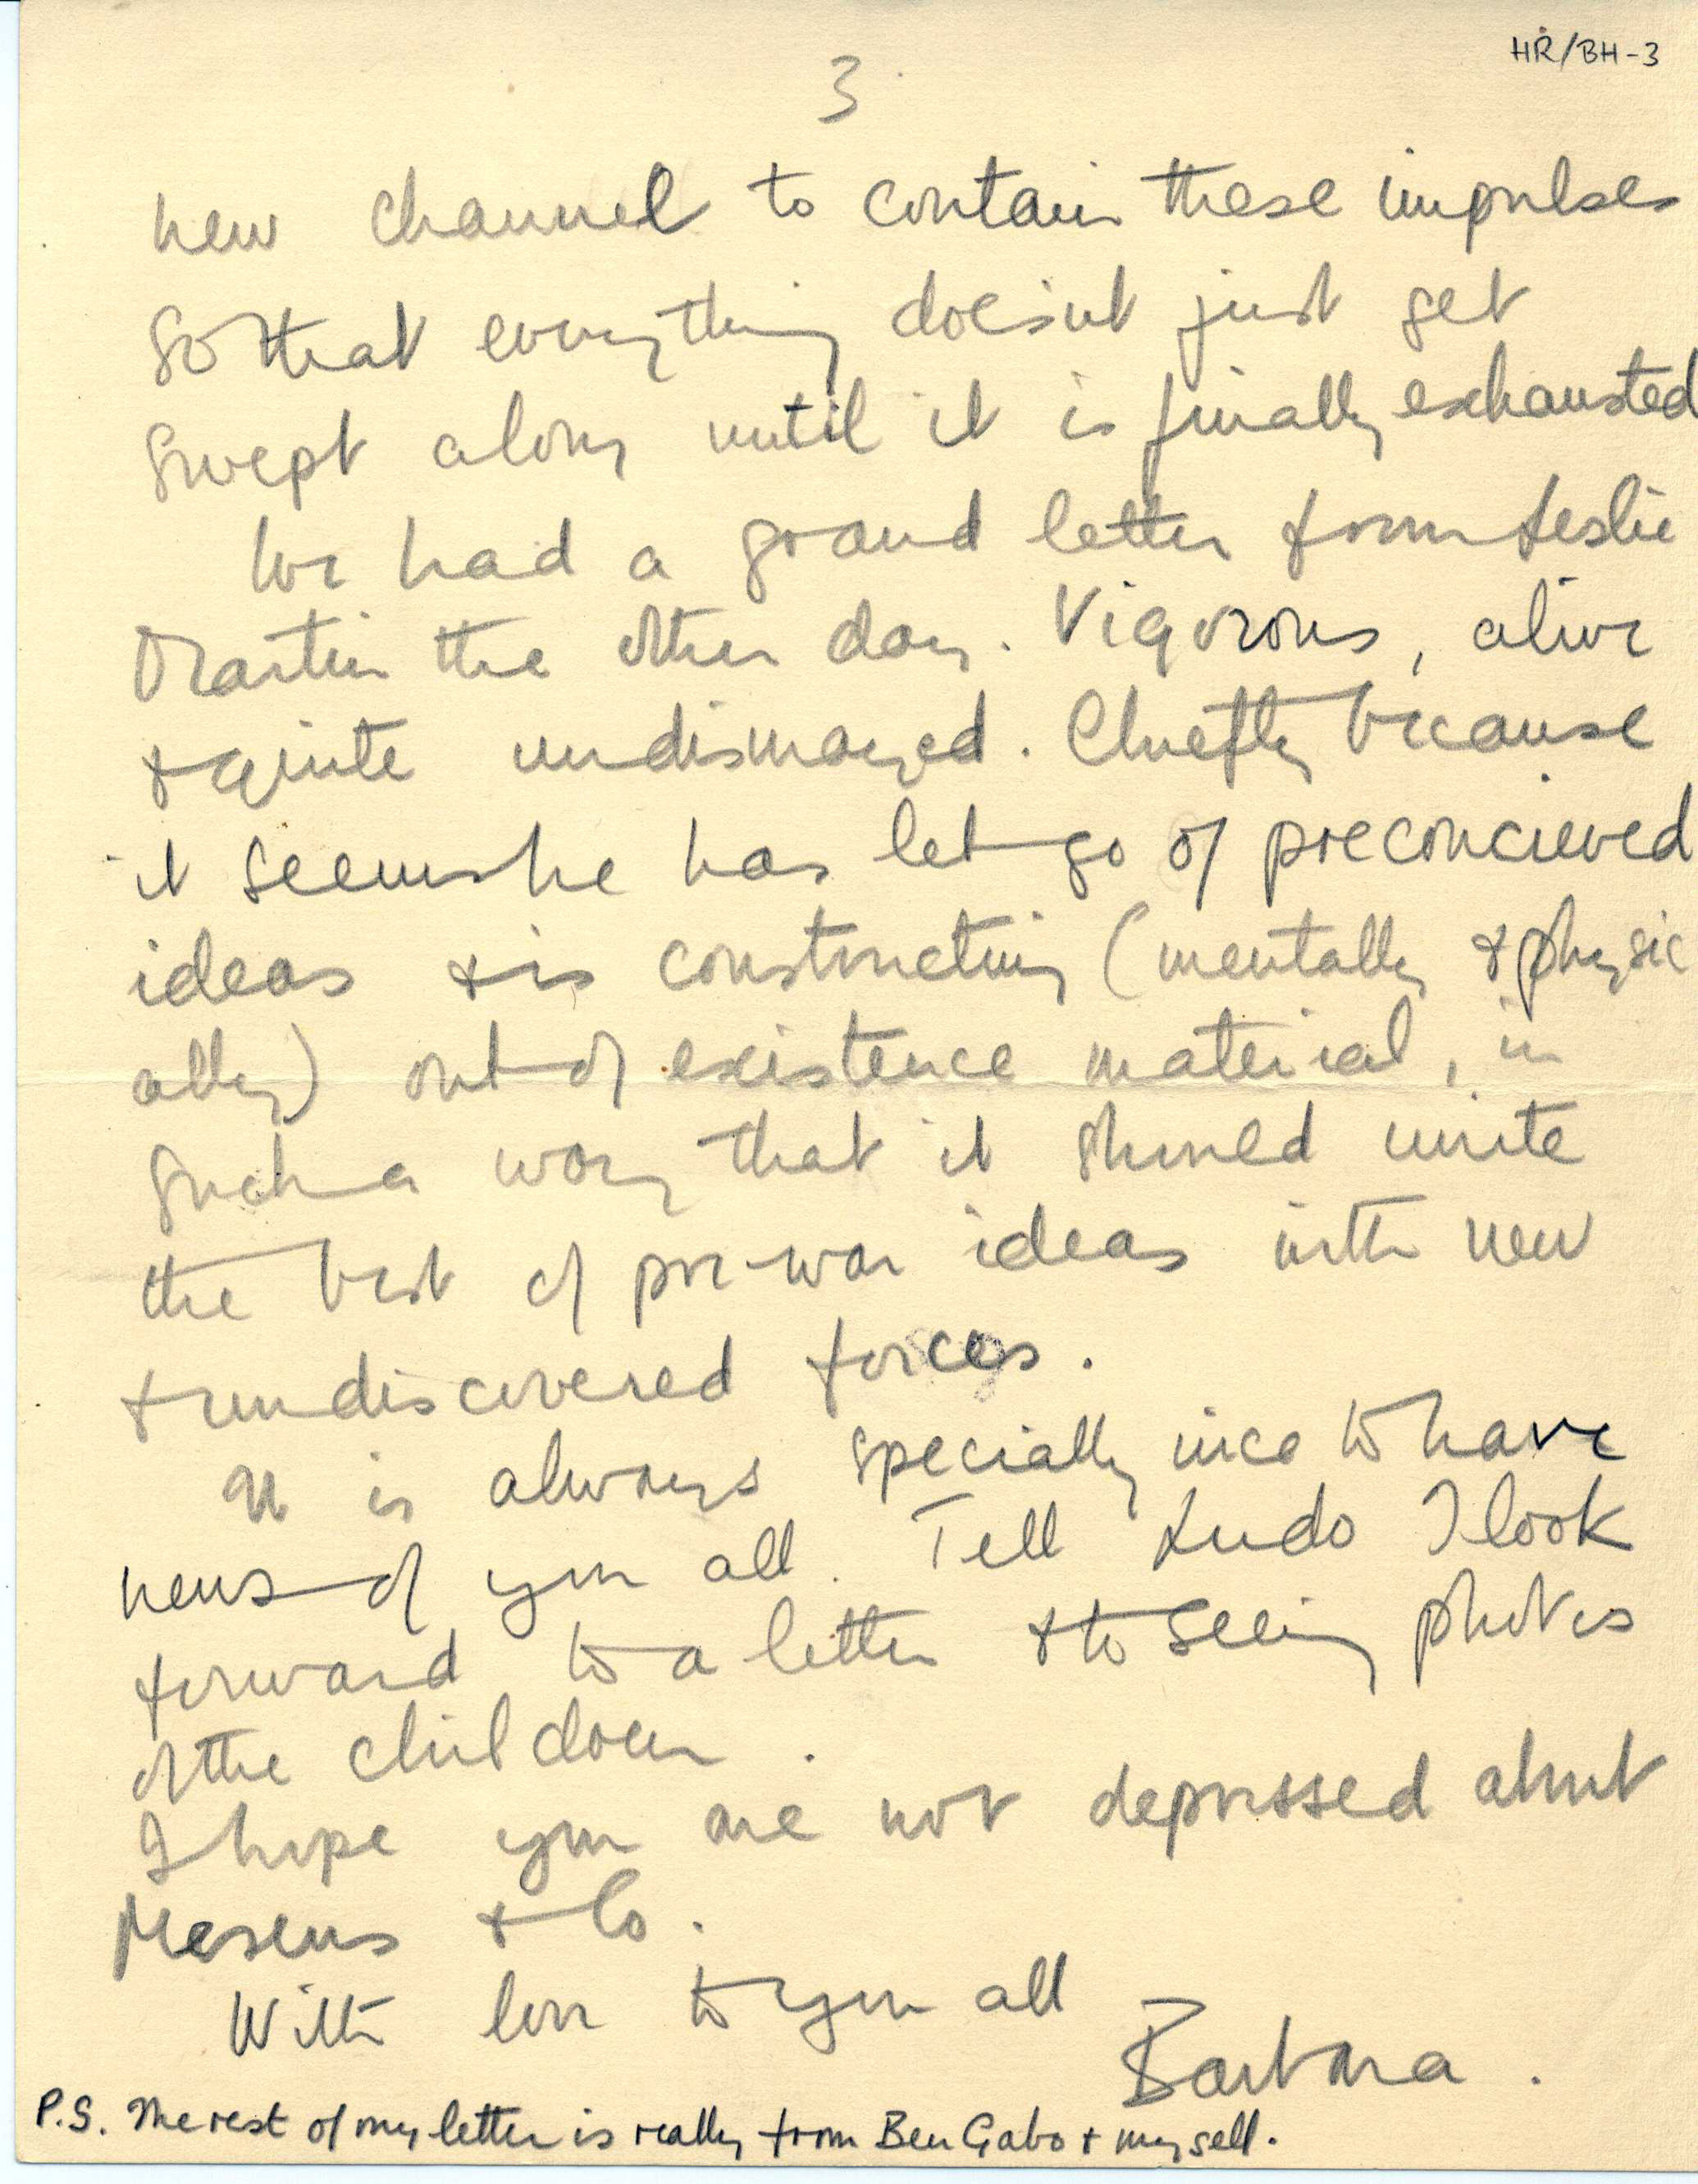 HR/BH-3
3
new channel to contain these impulses
so that everything doesn't just get
swept along until it is finally exhausted
We had a grand letter from Leslie
Martin the other day. Vigorous, alive
& quite undismayed. Chiefly because
it seems he has let go of preconcieved
ideas & is constructing (mentally & physic
ally) out of existence material, in
such a way that it should unite
the best of pre-war ideas with new
& undiscovered forces.
It is always specially nice to have
news of you all. Tell Ludo I look
forward to a letter & to seeing photos
of the children.
I hope you are not depressed about
Mesens & Co.
With love to you all
Barbara.
P.S. The rest of my letter is really from Ben Gabo & myself.